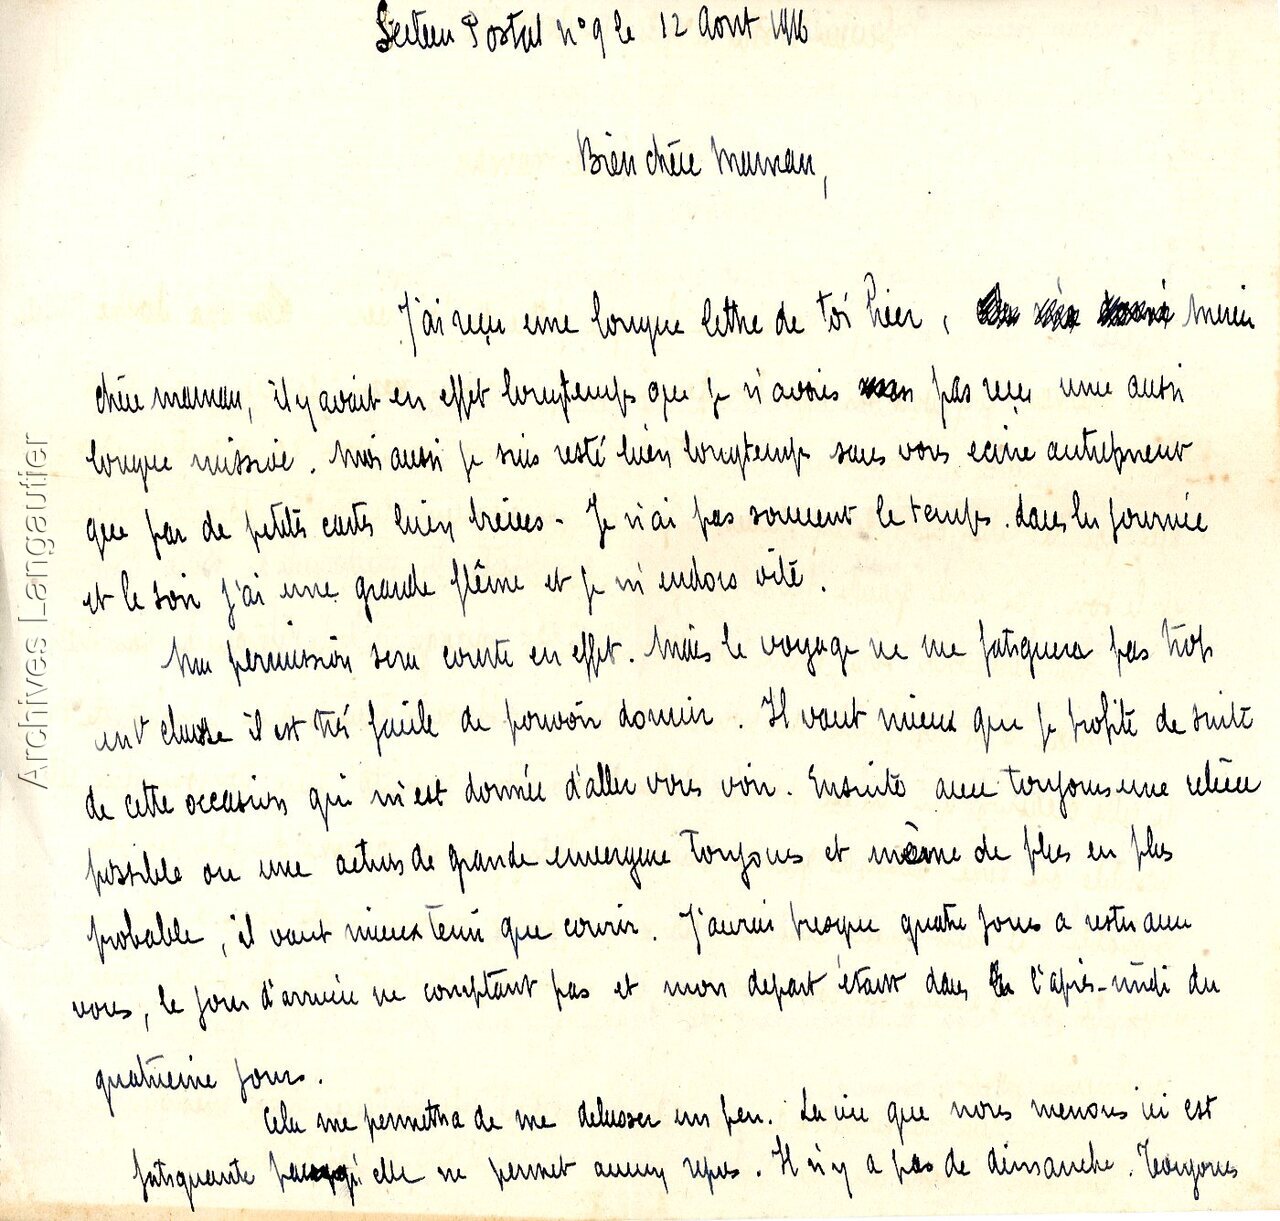 Secteur Postal n° 9 le 12 Aout 1916
Bien chère Maman,
J'ai reçu une longue lettre de toi hier, Merci
chère maman, il y avait en effet longtemps que je n'avais pas reçu une aussi
longue missive. Moi aussi je suis resté bien longtemps sans vous ecrire autrement
que par de petites cartes bien breves - Je n'ai pas souvent le temps dans la journée
et le soir j'ai une grande flême et je m'endors vite.
Ma permission sera courte en effet. Mais le voyage ne me fatiguera pas trop
il est très facile de pouvoir dormir. Il vaut mieux que je profite de suite
de cette occasion qui m'est donnée d'aller vous voir. Ensuite avec toujours une relève
possible ou une action de grande envergure toujours et même de plus en plus
probable, il vaut mieux tenir que courir. J'aurai presque quatre jours a rester avec
vous, le jour d'arrivée ne comptant pas et mon depart étant dans l'après-midi du
quatrieme jour.
Cela me permettra de me delasser un peu. La vie que nous menons ici est
fatiguante parcequ'elle ne permet aucun repos. Il n'y a pas de dimanche. Toujours
Archives Langautier